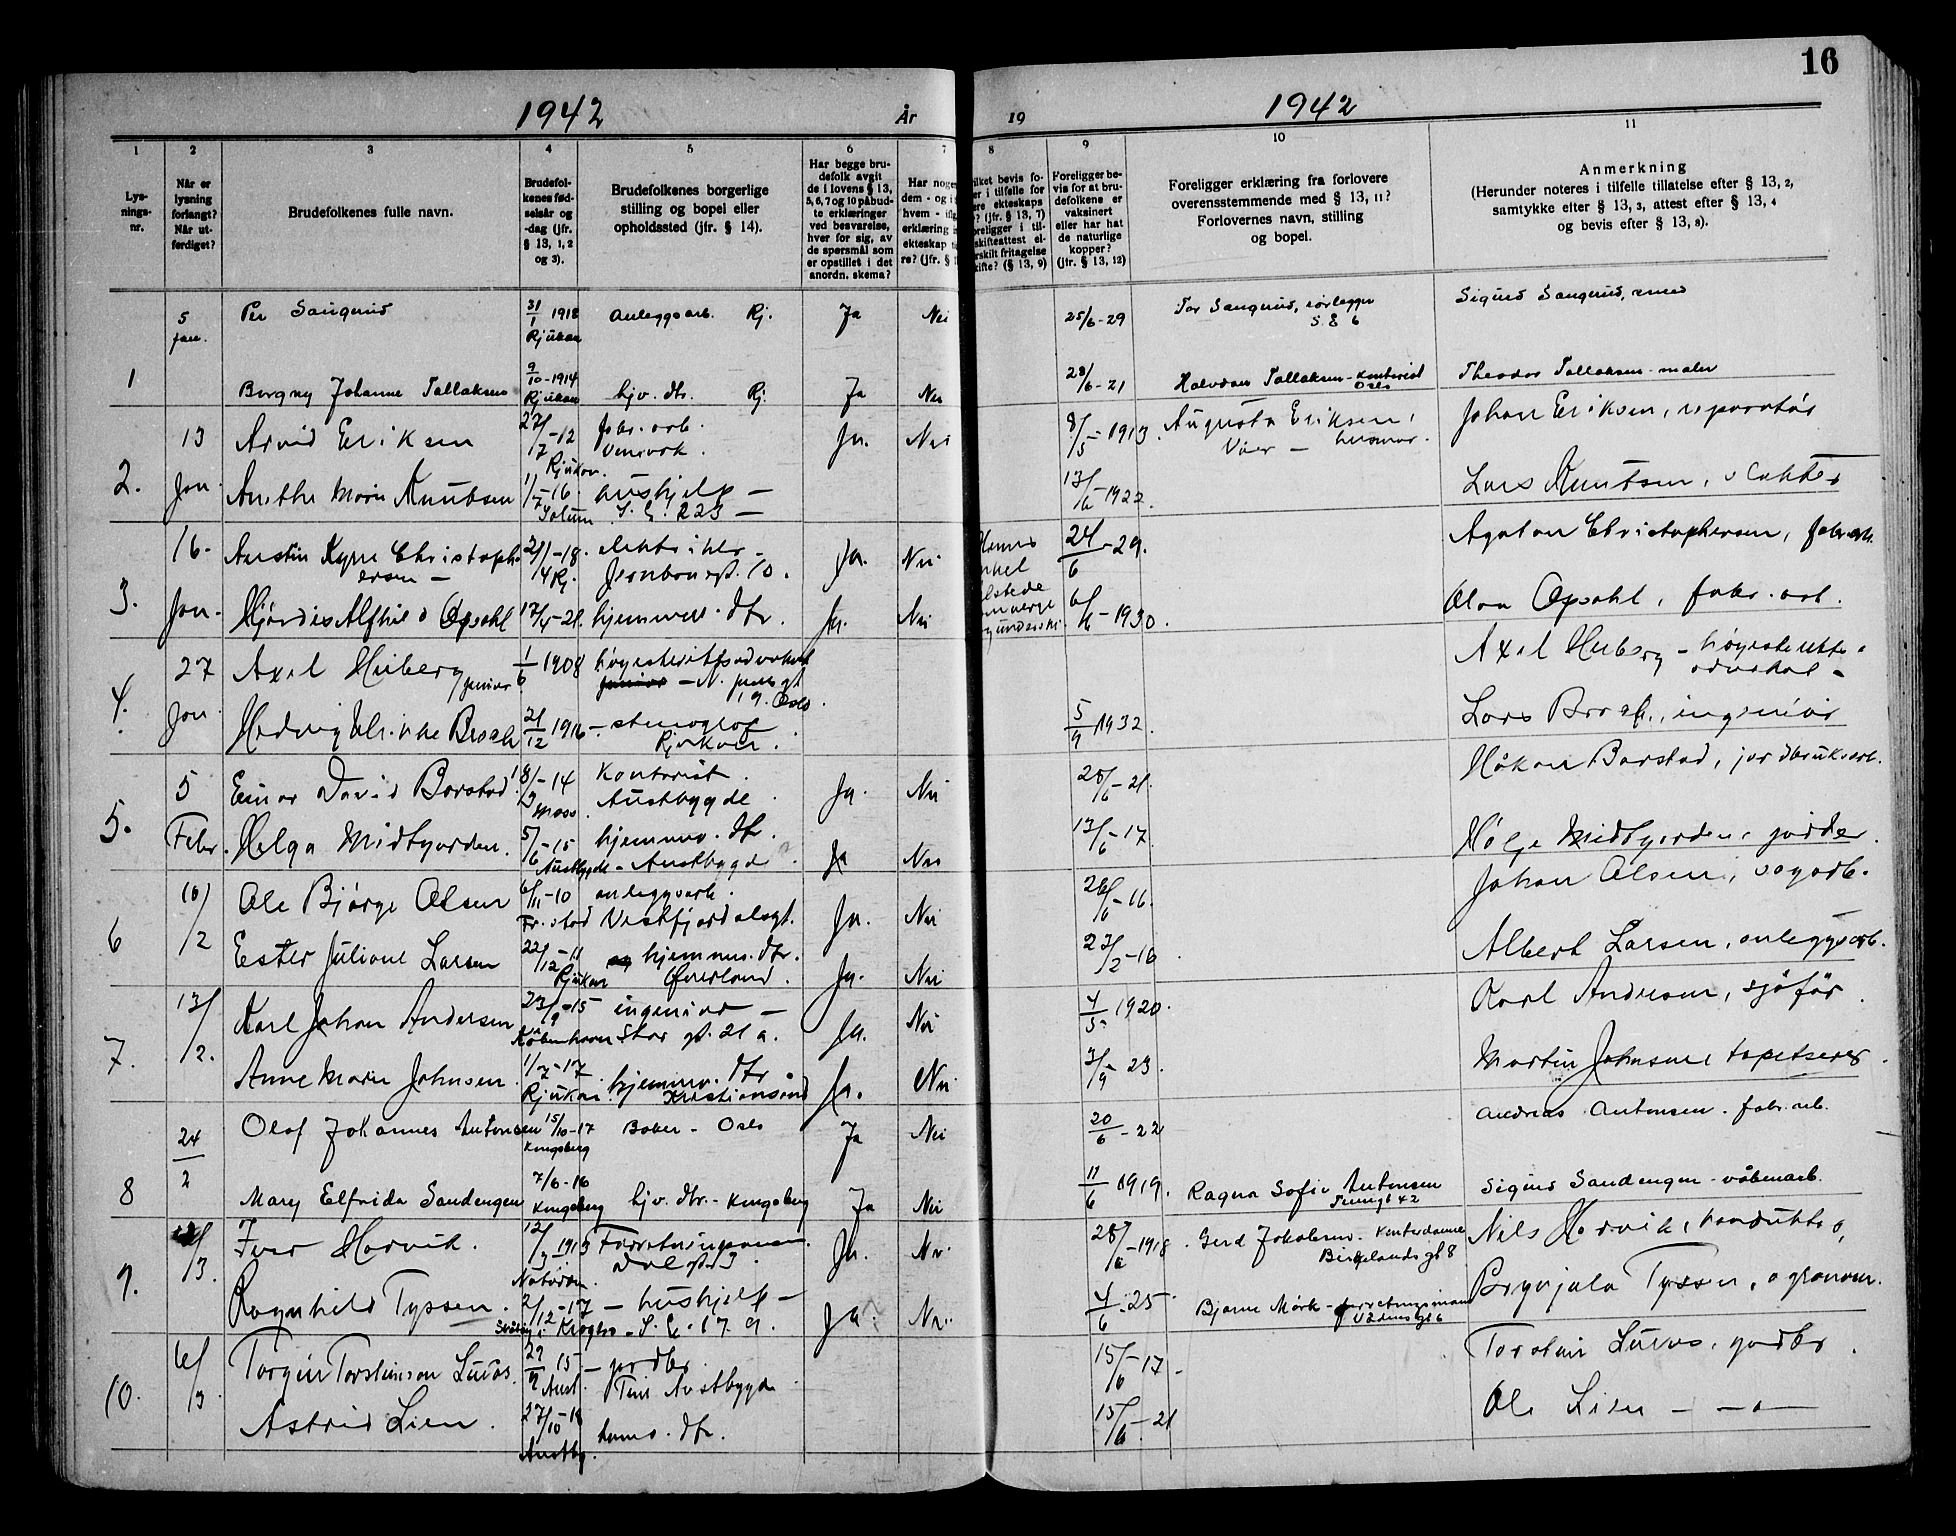 16
1942
År
19
1942
1
2
3
4
5
6
7
8
9
10
11
Lys-
nings-
nr.
Når er
lysning
forlangt?
Når ut-
ferdiget?
Brudefolkenes fulle navn.
Brudefol-
kenes fød-
selsår og
-dag (jfr.
§ 13, 1, 2
og 3).
Brudefolkenes borgerlige
stilling og bopel eller
opholdssted (jfr. § 14).
Har begge bru-
defolk avgit
de i lovens § 13,
5, 6, 7 og 10 påbud-
te erklæringer
ved besvarelse,
hver for sig, av
de spørsmål som
er opstillet i det
anordn. skema?
Har noge
dem - og i
hvem - ifl
erklæring i
ekteskap t
re? (jfr. §
ilket bevis fo-
er i tilfelle for
ere ekteskaps
? (jfr. § 13, 7)
oreligger i til-
skifteattest el-
rskilt fritagelse
kifte? (§ 13, 9)
Foreligger be-
vis for at bru-
defolkene er
vaksinert
eller har hat
de naturlige
kopper?
(jfr. § 13, 12)
Foreligger erklæring fra forlovere
overensstemmende med § 13, 11?
Forlovernes navn, stilling
og bopel.
Anmerkning
(Herunder noteres i tilfelle tillatelse efter § 13, 2,
samtykke efter § 13, 3, attest efter § 13, 4
og bevis efter § 13, 8).
5 jan. Per Saugerud 31/1 1918 Rjukan anleggsarb. Rj. Ja Nei 25/6-29 Tor Saugerud, rørlegger S E 6 Sigurd Saugerud, smed
1 Borgny Johanne Tallaksen 9/10-1914 Rjukan hjv. dtr. Rj. Ja Nei 28/6-21 Halvdan Tallaksen - kontorist Oslo Theodor Tallaksen - maler
13 Arvid Eriksen 27/7-12 Rjukan. fabr. arb. Vemork. Ja. Nei 8/5-1913. Augusta Eriksen, husmor. Våer - Johan Eriksen, reparatør
2. Jan. Anethe Marie Knutsen 1/7-16. Solum hushjelp - S. E. 223 - 13/6-1922. Lars Knutsen, slakter
16. Austin Kyrre Christophersen - 2/1-18. Rj. elektriker - Jernbanegt. 10. Ja. Nei 24/6-29. Agaton Christophersen, fabr. arb.
3. Jan. Hjørdis Alfhild Opsahl 17/4-21. hjemmev. dtr. Ja. Nei 6/6-1930. Olaa Opsahl, fabr. arb.
27 Axel Heiberg junior 1/6 1908 høyesterettsadvokat - N. gt 19. Oslo. Axel Heiberg - høyesteretts-advokat -
4. Jan. Hedvig Ulrikke Broch 21/12 1916 - stenograf Rjukan. 5/9 1932. Lars Broch, ingeniør
5 Einar David Barstad 18/3-14 Moss. Kontorist. Austbygde. Ja. Nei 28/6-21. Håkon Barstad, jordbruksarb.
5. Febr. Helga Midtgarden. 5/6-15 Austbygde hjemmev. dtr. - Austbygde Ja Nei 13/6-17. Helge Midtgarden, gardbr.
10/2 Ole Bjørge Olsen 6/11-10 Fr.stad anleggsarb. Vestfjorddalsgt. Ja. Nei 26/6-16. Johan Olsen, sagarb.
6 Ester Juliane Larsen 22/12-11 Rjukan hjemmev. dtr. Øverland. Ja. Nei 27/2-16. Albert Larsen, anleggsarb.
13/2. Karl Johan Andersen 23/9-15 København ingeniør - Stor gt. 21 a. Ja. Nei 4/5-1920. Karl Andersen, sjåfør.
7. Anne Marie Johnsen. 1/7-17 Rjukan. hjemmev. dtr. Kristiansand Ja. Nei 3/9-23. Martin Johnsen, tapetserer.
24/2 Olaf Johannes Antonsen 15/10-17 Kongsberg Baker - Oslo Ja Nei 20/6-22 Andreas Antonsen. fabr. arb.
8 Mary Elfrida Sandengen 7/6-16 Kongsberg hjv. dtr. - Kongsberg Ja Nei 11/6 1919. Ragna Sofie Antonsen 42 Sigurd Sandengen - våbenarb.
9. /3. Iver Horvik. 12/3-1913 Notodden. Forretningsmann Dal gt. 3. Ja. Nei. 28/6-1918. Gerd Jakobsen - kontordame Birkelands gt 8 Nils Horvik, konduktør,
Ragnhild Tyssen. 2/12-17 - hushjelp - S. E. 179. Ja Nei. 4/6-25. Bjarne Mørk - forretningsmann 6 Brynjulv Tyssen, agronom.
6/3 Torgeir Torsteinson Luraas. 29/9 15 Aust. - gardbr. Tinn Austbygde 15/6-17 - Torstein Luraas, gardbr.
10. Astrid Lien. 27/10-18 Austby. hmv. dtr. 15/6-21 Ole Lien - - " -